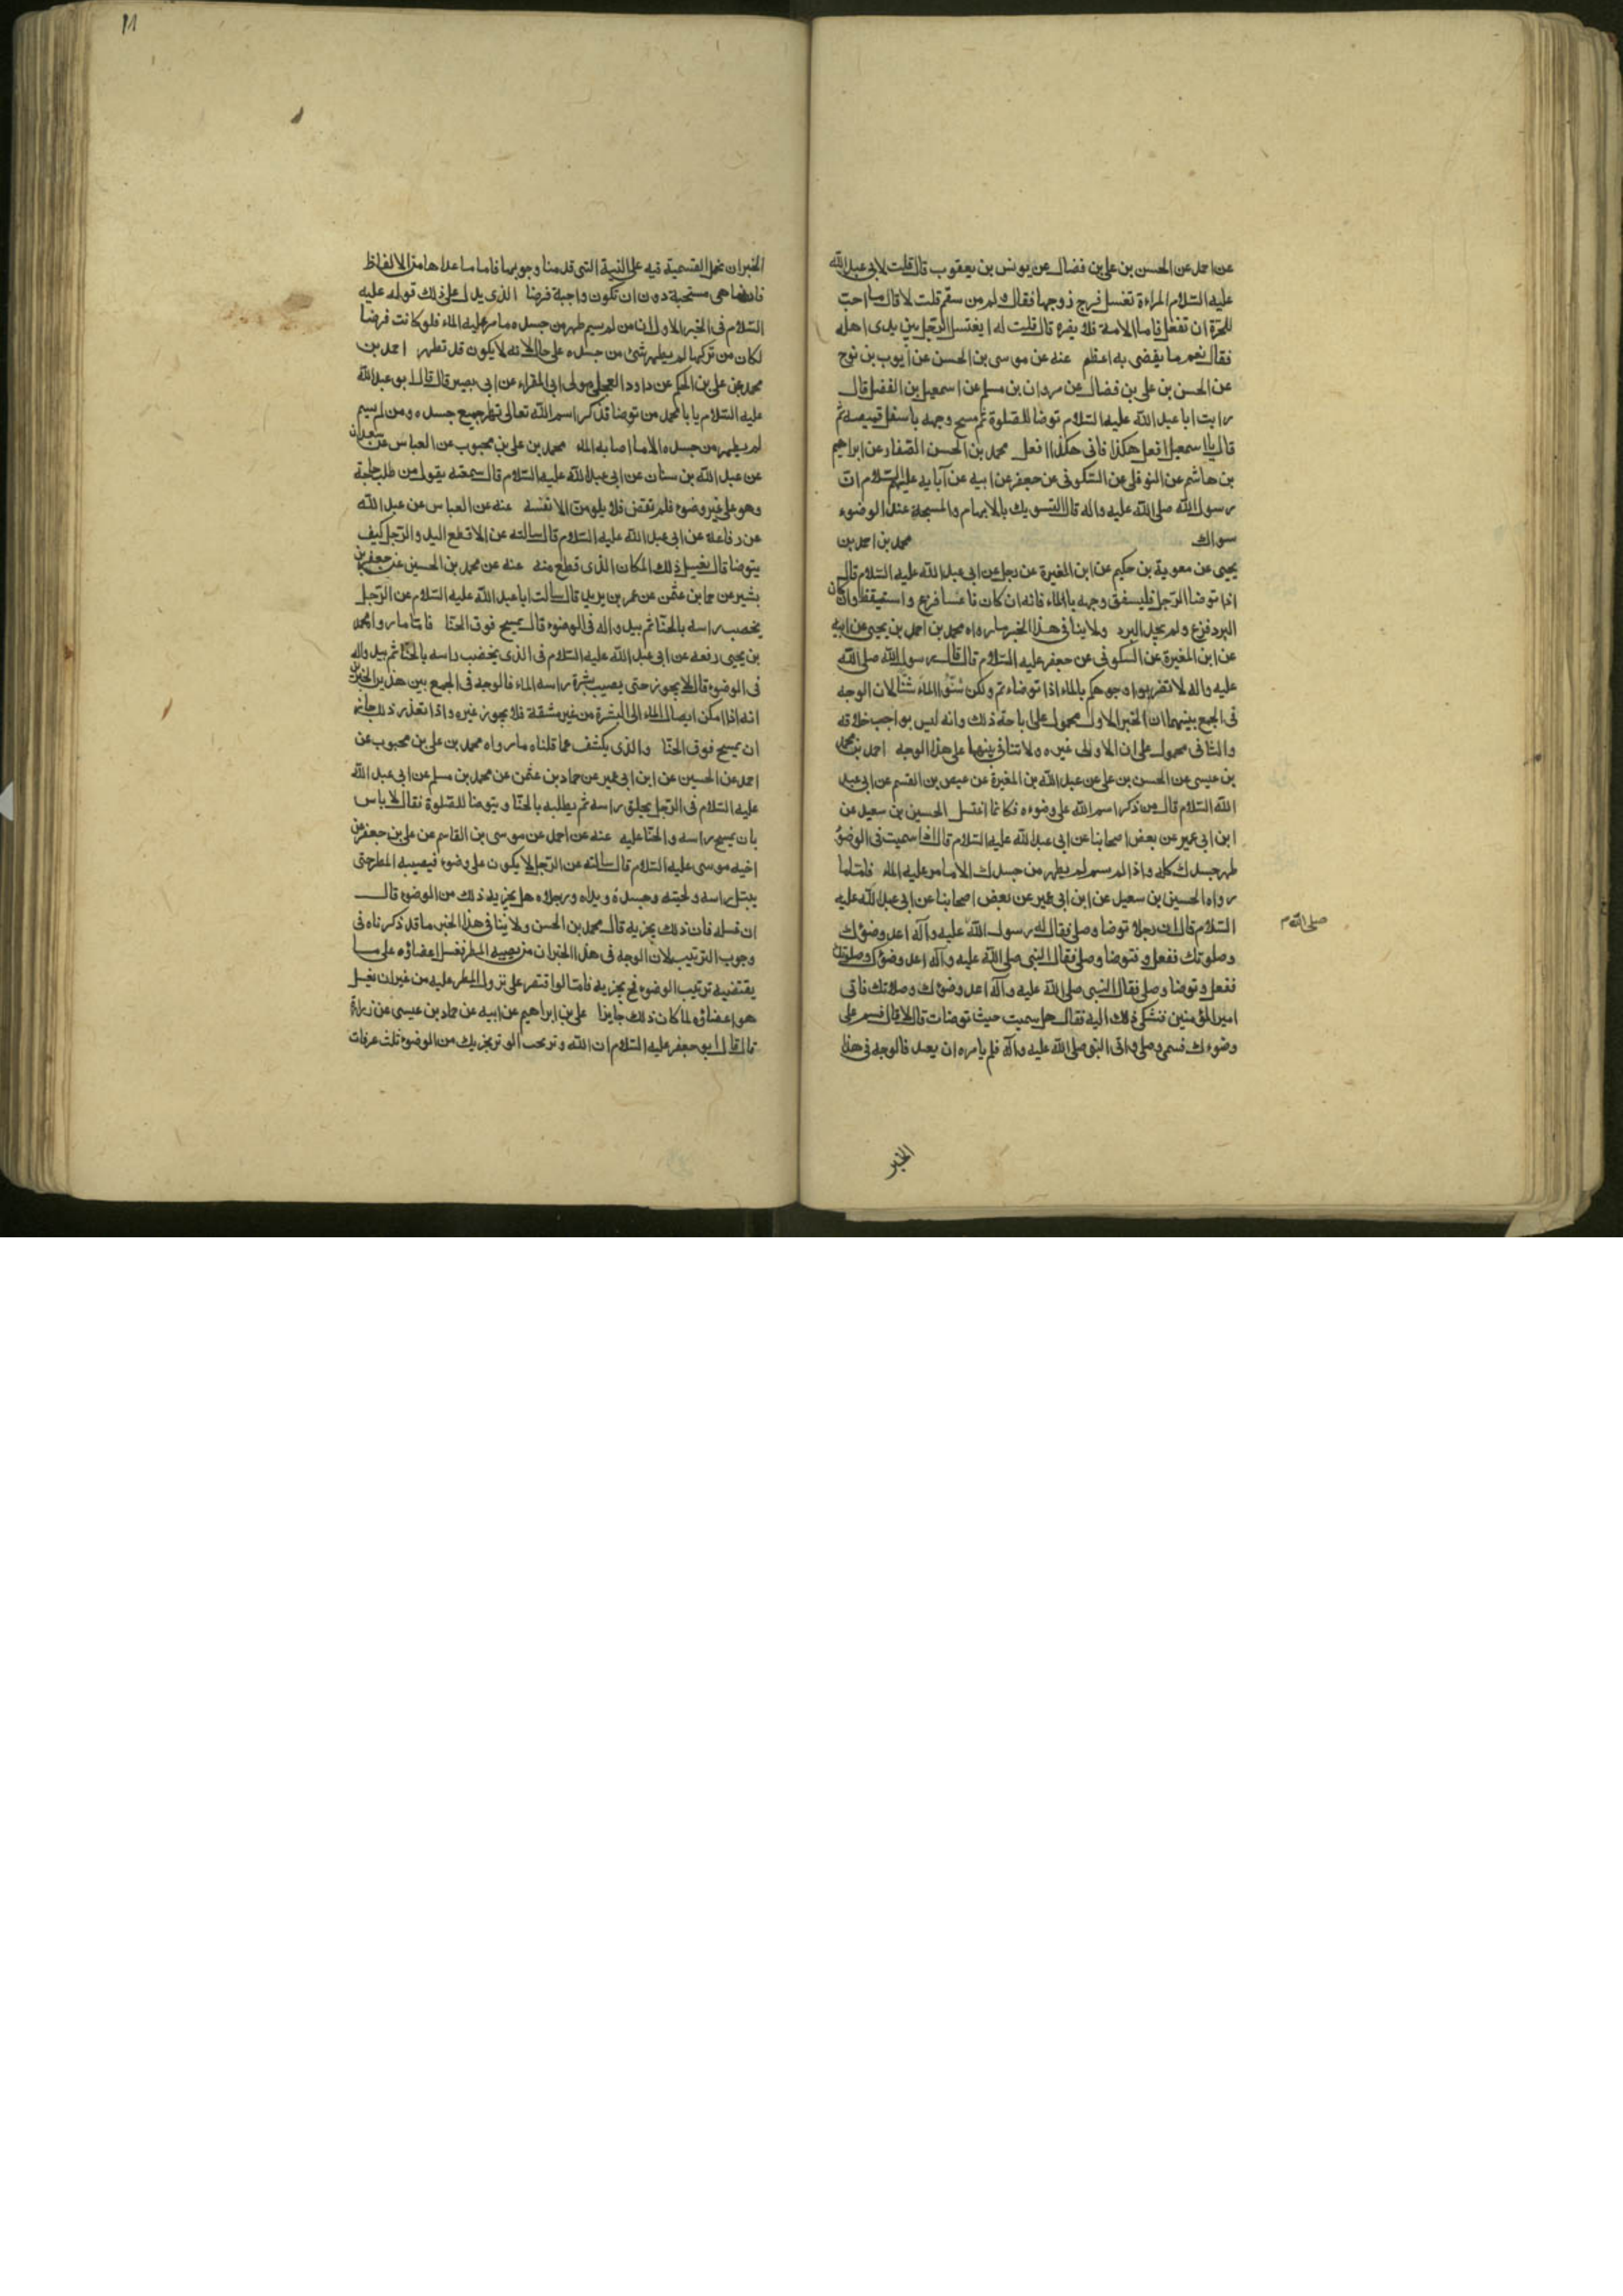 عن احمد عن الحسن بن علي بن فضال عن يونس بن يعقوب قال قلت لابي عبد الله
عليه السلام المراءة تغسل فرج زوجها فقال ولم من سقم قلت لا قال ما احب
للحرة ان تفعل فاما الامة فلا يضره قال قلت له ايغتسل الرجل بين يدى اهله
فقال نعم ما يفضى به اعظم عنه عن موسى بن الحسن عن ايوب بن نوح
عن الحسن بن على بن فضال عن مردان بن مسلم عن اسمعيل بن الفضل قال
رايت ابا عبد الله عليه السلام توضا للصلوة ثم مسح وجهه باسفل قميصه ثم
قال يا اسمعيل افعل هكذا فانى هكذا افعل محمد بن الحسن الصفار عن ابراهيم
بن هاشم عن النوفلى عن السكونى عن جعفر عن ابيه عن آبايه عليهم السلام ان
رسول الله صلى الله عليه واله قال التسويك بالابهام والمسبحة عند الوضوء
سواك محمد بن احمد بن
يحيى عن معوية بن حكيم عن ابن المغيرة عن رجل عن ابى عبد الله عليه السلام قال
اذا توضا الرجل فليسفق وجهه بالماء فانه ان كان ناعسا فزع واستيقظ وان كان
البرد فزع ولم يجد البرد ولاينافى هذا الخبر ما رواه محمد بن احمد بن يحيى عن ابيه
عن ابن المغيرة عن السكونى عن جعفر عليه السلام قال قال رسول الله صلى الله
عليه واله لا تضربوا وجوهكم بالماء اذا توضاءتم ولكن شنوا الماء شنا لان الوجه
فى الجمع بينهما ان الخبر الاول محمول على اباحة ذلك وانه ليس بواجب خلافه
والثانى محمول على ان الاولى غيره ولا تنافى بينهما على هذا الوجه احمد بن محمد
بن عيسى عن الحسن بن على عن عبد الله بن المغيرة عن عيص بن القسم عن ابى عبد
الله السلام قال من ذكر اسم الله على وضوءه فكانما اغتسل الحسين بن سعيد عن
ابن ابى عمير عن بعض اصحابنا عن ابى عبد الله عليه السلام قال اذا سميت فى الوضؤ
طهر جسدك كله واذا لم تسم لم يطهر من جسدك الا ما مر عليه الماء فاما ما
رواه الحسين بن سعيد عن ابن ابى عمير عن بعض اصحابنا عن ابى عبد الله عليه
السلام قال ان رجلا توضا وصلى فقال له رسول الله عليه وآله اعد وضؤك
صلى الله م
وصلوتك ففعل وتوضا وصلى فقال النبى صلى الله عليه وآله اعد وضؤك وصلوتك
ففعل وتوضا وصلى فقال النبى صلى الله عليه وآله اعد وضؤك وصلاتك فاتى
امير المؤمنين فشكى ذلك اليه فقال هل سميت حيث توضات قال لا قال فسم على
وضوءك فسمى وصلى واتى النبى صلى الله عليه وآله فلم يامره ان يعيد فالوجه فى هذا
الخبر
الخبر ان نحمل التسمية فيه على النية التى قدمنا وجوبها فاما ما عداها من الالفاظ
فانما هى مستحبة دون ان تكون واجبة فرضا الذى يدل على ذلك قوله عليه
السلام فى الخبر الاول ان من لم يسم طهر من جسده ما مر عليه الماء فلو كانت فرضا
لكان من تركها لم يطهر شئ من جسده على حال لانه لا يكون قد تطهر احمد بن
محمد عن على بن الحكم عن داود العجلى مولى ابى المغراء عن ابى بصير قال قال ابو عبد الله
عليه السلام يا با محمد من توضا فذكر اسم الله تعالى تطهر جميع جسده ومن لم يسم
لم يطهر من جسده الا ما اصابه الماء محمد بن على بن محبوب عن العباس عن سعدان
عن عبد الله بن سنان عن ابى عبد الله عليه السلام قال سمعته يقول من طلب حاجة
وهو على غير وضوء فلم تقض فلا يلومن الا نفسه عنه عن العباس عن عبد الله
عن رفاعة عن ابى عبد الله عليه السلام قال سالته عن الاقطع اليد والرجل كيف
يتوضا قال يغسل ذلك المكان الذى قطع منه عنه عن محمد بن الحسين عن جعفر بن
بشير عن حماد بن عثمن عن عمر بن يزيد قال سالت ابا عبد الله عليه السلام عن الرجل
يخضب راسه بالحنا ثم يبد واله فى الوضوء قال يمسح فوق الحنا فاما ما رواه محمد
بن يحيى رفعه عن ابى عبد الله عليه السلام فى الذى يخضب راسه بالحنا ثم يبد واله
فى الوضوء قال لا يجوز حتى يصيب بشرة راسه الماء فالوجه فى الجمع بين هذين الخبرين
انه اذا امكن ايصال الماء الى البشرة من غير مشقة فلا يجوز غيره واذا تعذر ذلك جاز
ان يمسح فوق الحنا والذى يكشف عما قلناه ما رواه محمد بن على بن محبوب عن
احمد عن الحسين عن ابن ابى عمير عن حماد بن عثمن عن محمد بن مسلم عن ابى عبد الله
عليه السلام فى الرجل يحلق راسه ثم يطليه بالحنا ويتوضا للصلوة فقال لا باس
بان يمسح راسه والحنا عليه عنه عن احمد عن موسى بن القاسم عن على بن جعفر عن
اخيه موسى عليه السلام قال سالته عن الرجل لا يكون على وضوء فيصيبه المطر حتى
يبتل راسه ولحيته وجسده ويداه ورجلاه هل يجزيه ذلك من الوضوء قال
ان غسله فان ذلك يجزيه قال محمد بن الحسن ولا ينافى هذا الخبر ما قد ذكرناه فى
وجوب الترتيب لان الوجه فى هذا الخبر ان من يصيبه المطر فغسل اعضاؤه على ما
يقتضيه ترتيب الوضوء فح يجزيه فاما لو اقتصر على نزول المطر عليه من غير ان يغسل
هو اعضاؤه لما كان ذلك جايزا على بن ابراهيم عن ابيه عن حماد بن عيسى عن زرارة
قال قال ابو جعفر عليه السلام ان الله وتر يحب الوتر يجزيك من الوضوء ثلث غرفات